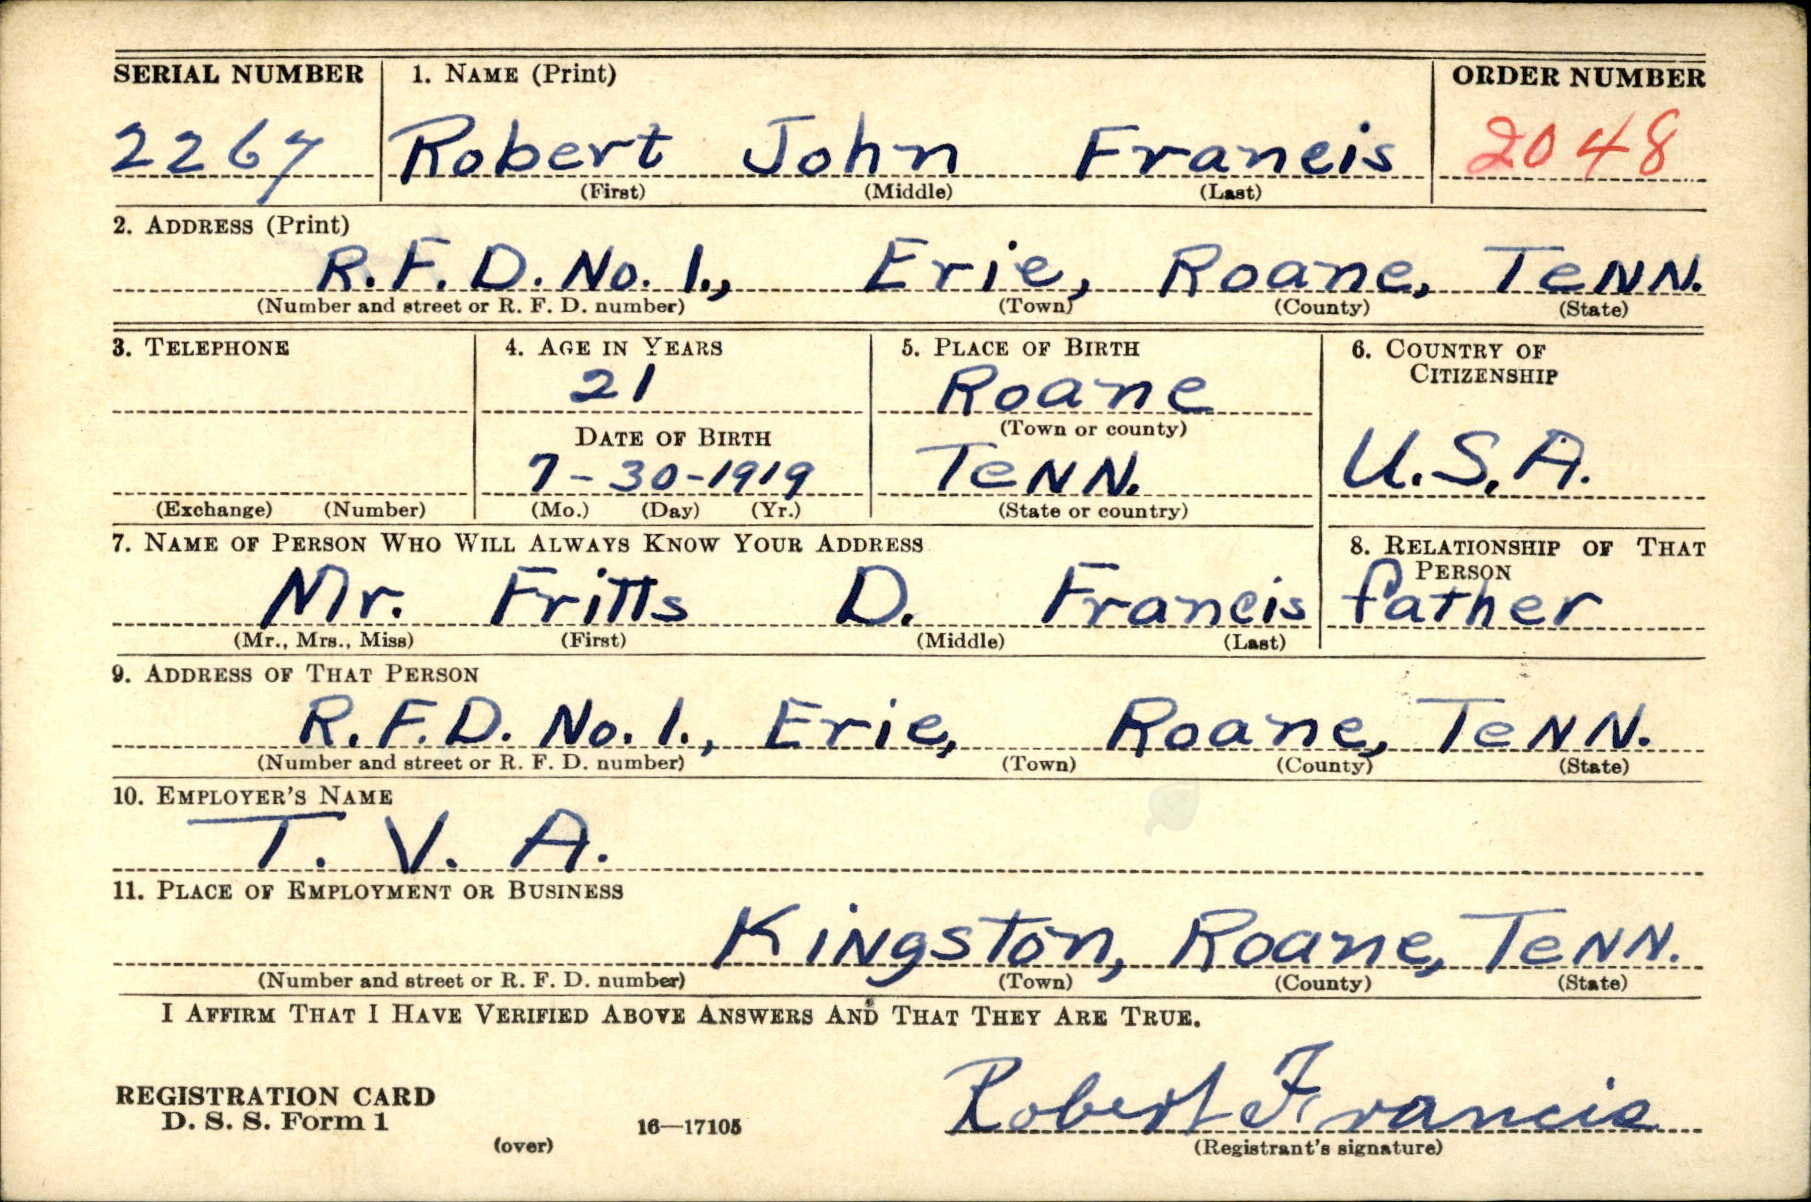 SERIAL NUMBER 1. NAME (Print) ORDER NUMBER
2267 Robert John Francis 2048
(First) (Middle) (Last)
2. ADDRESS (Print)
R.F.D. No. 1., Erie, Roane, TeNN.
(Number and street or R. F. D. number) (Town) (County) (State)
3. TELEPHONE 4. AGE IN YEARS 5. PLACE OF BIRTH 6. COUNTRY OF
CITIZENSHIP
21 Roane
DATE OF BIRTH (Town or county)
7-30-1919 TeNN. U.S.A.
(Exchange) (Number) (Mo.) (Day) (Yr.) (State or country)
7. NAME OF PERSON WHO WILL ALWAYS KNOW YOUR ADDRESS 8. RELATIONSHIP OF THAT
PERSON
Mr. Fritts D. Francis father
(Mr., Mrs., Miss) (First) (Middle) (Last)
9. ADDRESS OF THAT PERSON
R.F.D. No. 1., Erie, Roane, TeNN.
(Number and street or R. F. D. number) (Town) (County) (State)
10. EMPLOYER'S NAME
T. V. A.
11. PLACE OF EMPLOYMENT OR BUSINESS
Kingston, Roane, TeNN.
(Number and street or R. F. D. number) (Town) (County) (State)
I AFFIRM THAT I HAVE VERIFIED ABOVE ANSWERS AND THAT THEY ARE TRUE.
REGISTRATION CARD
D. S. S. Form 1 16—17105 Robert Francis
(over) (Registrant's signature)